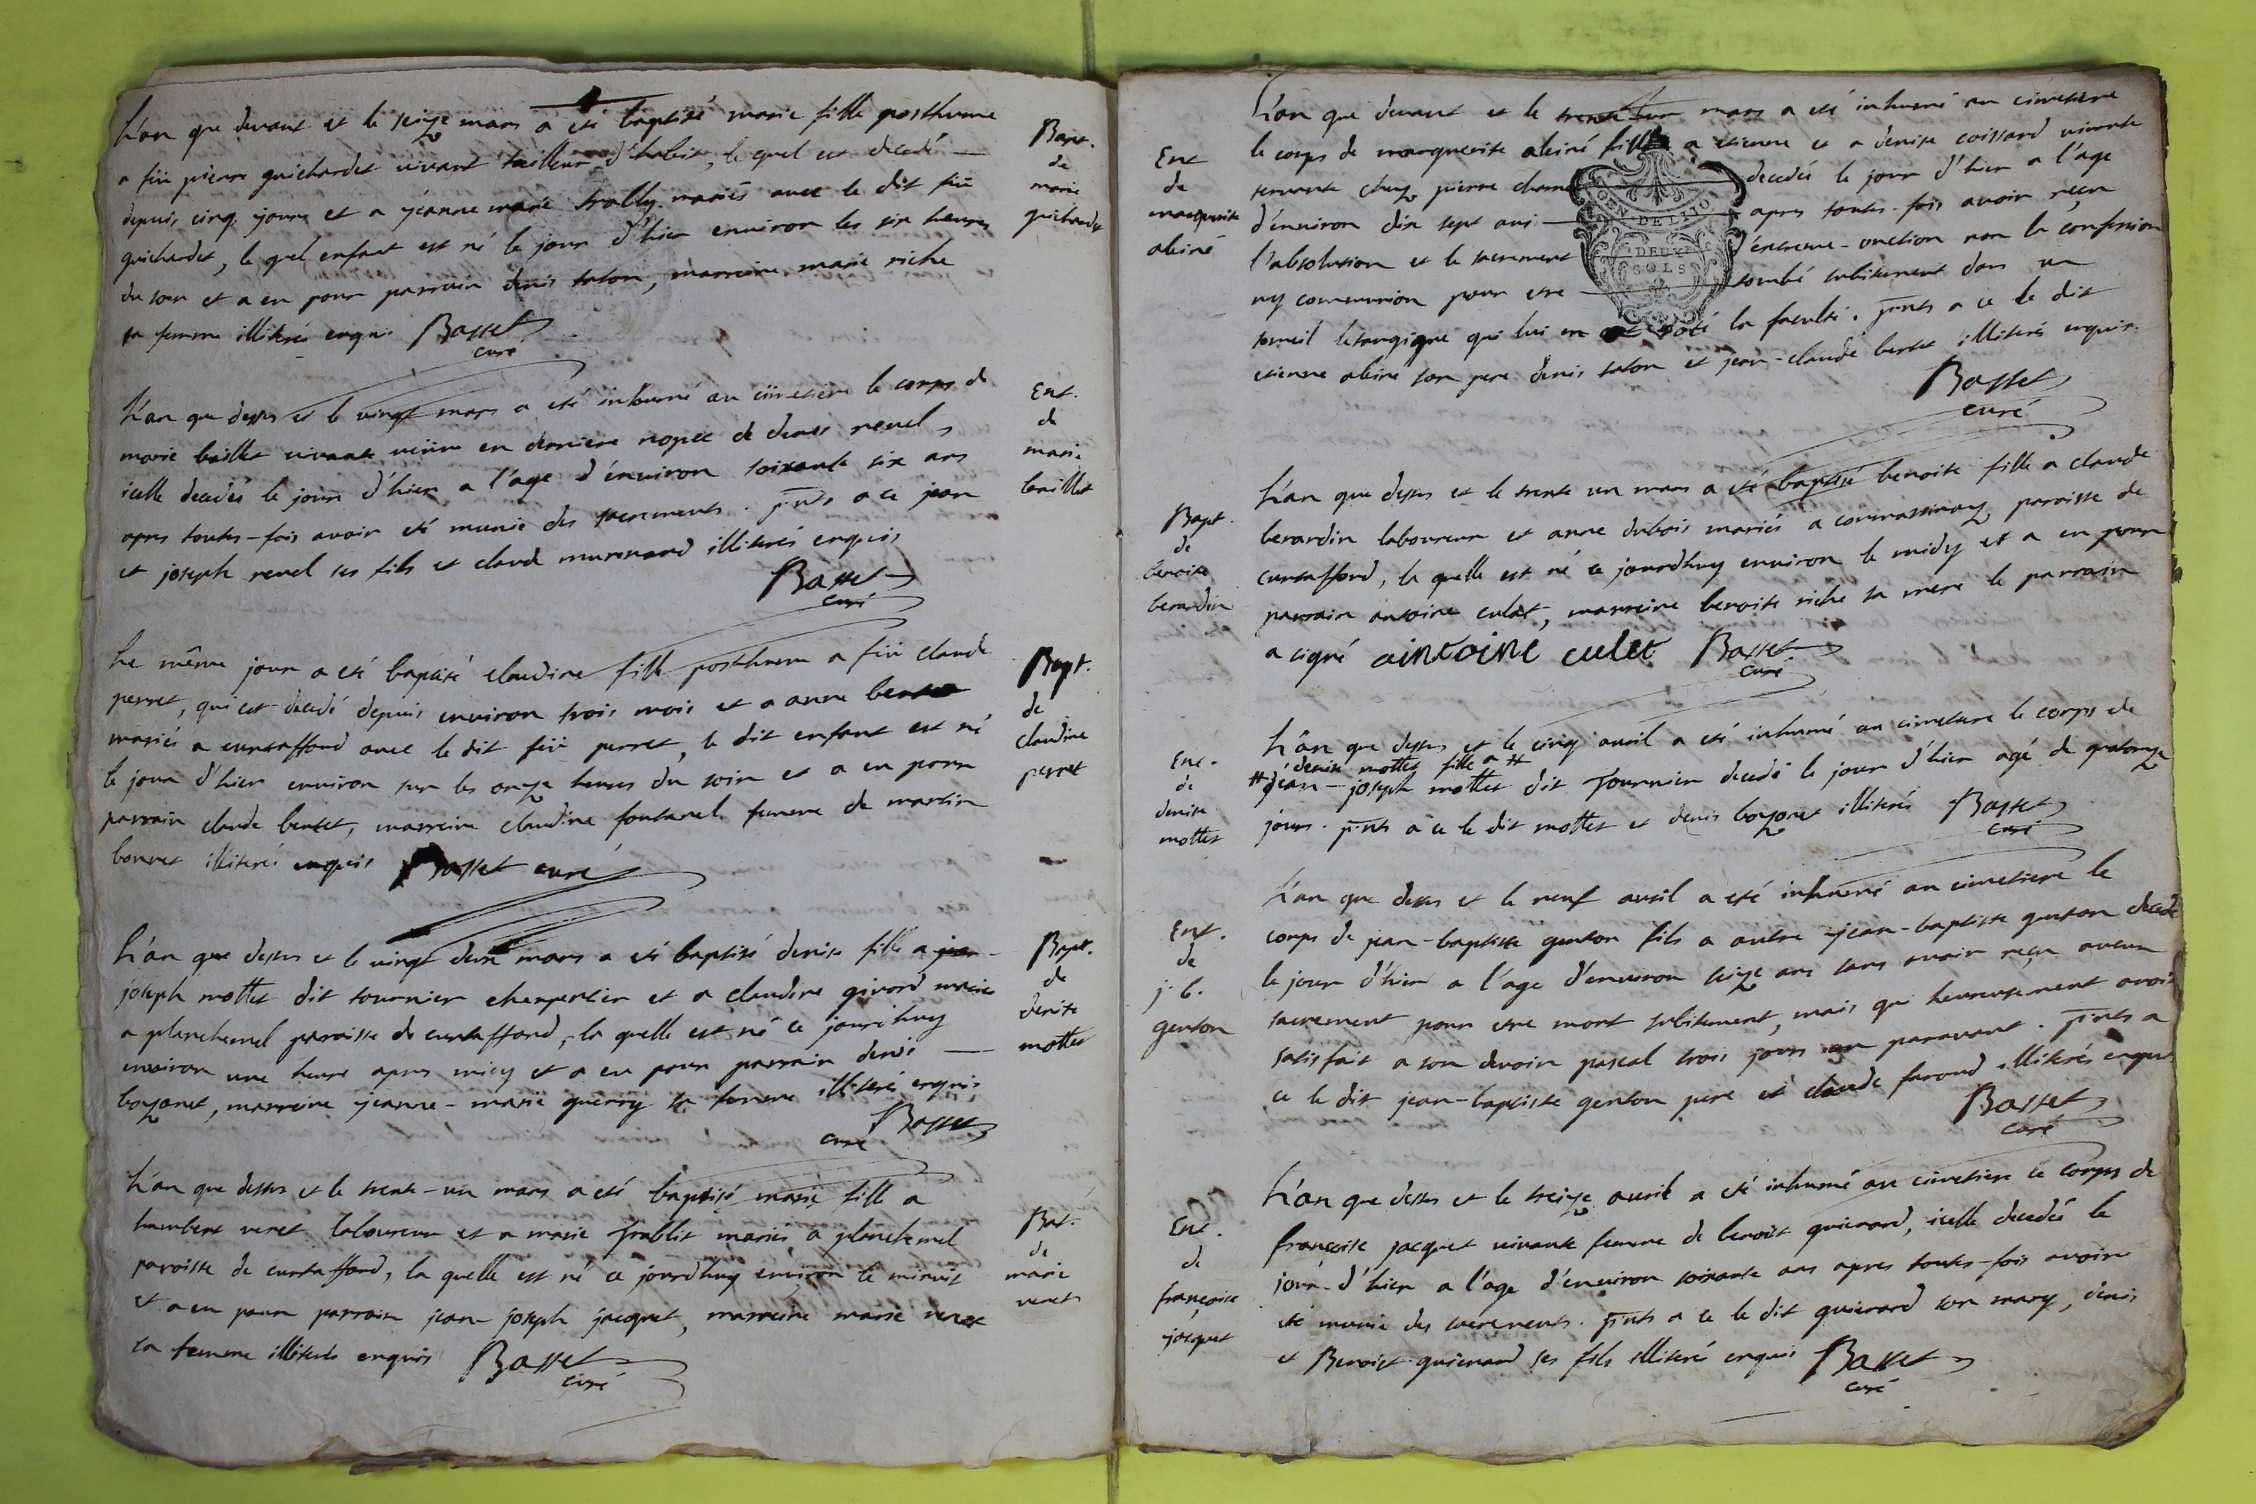 L'an que devant et le seize mars a eté baptisé marie fille posthume
a fûu pierre guichardet vivant tailleur d'habit, le quel est decedé
depuis cinq jours et a jéanne marie trably mariés avec le dit fûu
guichardet, le quel enfant est né le jour d'hier environ les six heures
du soir et a eu pour parrain denis taton, marreine marie riche
sa femme illiterés enqu. Basset
curé
Bapt.
de
marie
guichardet
L'an que dessus et le vingt mars a eté inhumé au cimetiere le corps de
marie baillet vivante veuve en derniere nopce de denis revel
icelle decedés le jour d'hier a l'age d'énviron soixante six ans
apres toutes-fois avoir eté munie des sacrements. p̄nts a ce jean
et joseph revel ses fils et claude murmand illiterés enquis
Basset
curé
Ent.
de
marie
baillet
Le même jour a eté baptisé claudine fille posthume a fûu claude
perret, qui est decedé depuis environ trois mois et a anne bertet
mariés a curtaffond avec le dit fûu perret, le dit enfant est né
le jour d'hier environ sur les onze heures du soir et a eu pour
parrain claude bertet, marreine claudine fontanel femme de martin
bonnet illiterés enquis Basset curé
Bapt.
de
claudine
perret
L'an que dessus et le vingt deux mars a eté baptisé denise fille a jean-
joseph mottet dit tournier charpentier et a claudine girard mariés
a planchemel paroisse de curtaffond, la quelle est né ce jourd'huy
environ une heure apres midy et a eu pour parrain denis
bozonet, marreine jeanne-marie guerry sa femme illiteré enquis
curé Basset
Bapt.
de
denise
mottet
L'an que dessus et le trente-un mars a eté baptisé marie fille a
humbert veret laboureur et a marie Trablit mariés a planchemel
paroisse de curtaffond, la quelle est né ce jourdhuy environ le minuit
et a eu pour parrain jean-joseph jacquet, marreine marie veret
sa femme illiterés enquis Basset
curé
Bat.
de
marie
veret
L'an que devant et le trente un mars a eté inhumé au cimetiere
le corps de marguerite alviné fille a etienne et a denise coissard vivante
servante chez pierre decedée le jour d'hier a l'age
d'énviron dix sept ans apres toutes-fois avoir reçu
l'absolution et le sacrement d'éxtreme-onction non la confession
ny communion pour etre tombé subitement dans un
someil letargique qui lui en oté la faculté. p̄nts a ce le dit
etienne alviné son pere denis taton et jean-claude bertet illiterés enquis.
Basset
curé
Ent
de
marguerite
alviné
GEN. DE LIIO
DEUX
SOLS
L'an que dessus et le trente un mars a eté baptisé benoite fille a claude
berardin laboureur et anne dubois mariés a commassinay paroisse de
curtaffond, la quelle est né ce jourdhuy environ le midy et a eu pour
parrain antoine culet, marreine benoite riche sa mere le parrain
a signé antoine culet Basset
curé
Bapt.
de
benoite
berardin
L'an que dessus et le cinq avril a eté inhumé au cimetiere le corps de
# denise mottet fille a #
jéan-joseph mottet dit Tournier decedé le jour d'hier agé de quatorze
jours. p̄nts a ce le dit mottet et denis bozonet illiterés Basset
curé
Ent.
de
denise
mottet
L'an que dessus et le neuf avril a eté inhumé au cimetiere le
corps de jean-baptiste genton fils a autre jean-baptiste genton decedé
le jour d'hier a l'age d'énviron seize ans sans avoir reçu aucun
sacrement pour etre mort subitement, mais qui heureusement avoit
satisfait a son devoir pascal trois jours au paravant. p̄nts a
ce le dit jean-baptiste genton pere et claude farond illiterés enquis
Basset
curé
Ent.
de
j. b.
genton
L'an que dessus et le treize avril a eté inhumé au cimetiere le corps de
françoise jacquet vivante femme de benoit guienard, icelle decedée le
jour-d'hier a l'age d'énviron soixante ans apres toutes-fois avoir
eté munie des sacrements. p̄nts a ce le dit guienard son mary, denis
et Benoist guienard ses fils illiteré enquis Basset
curé
Ent.
de
françoise
jacquet